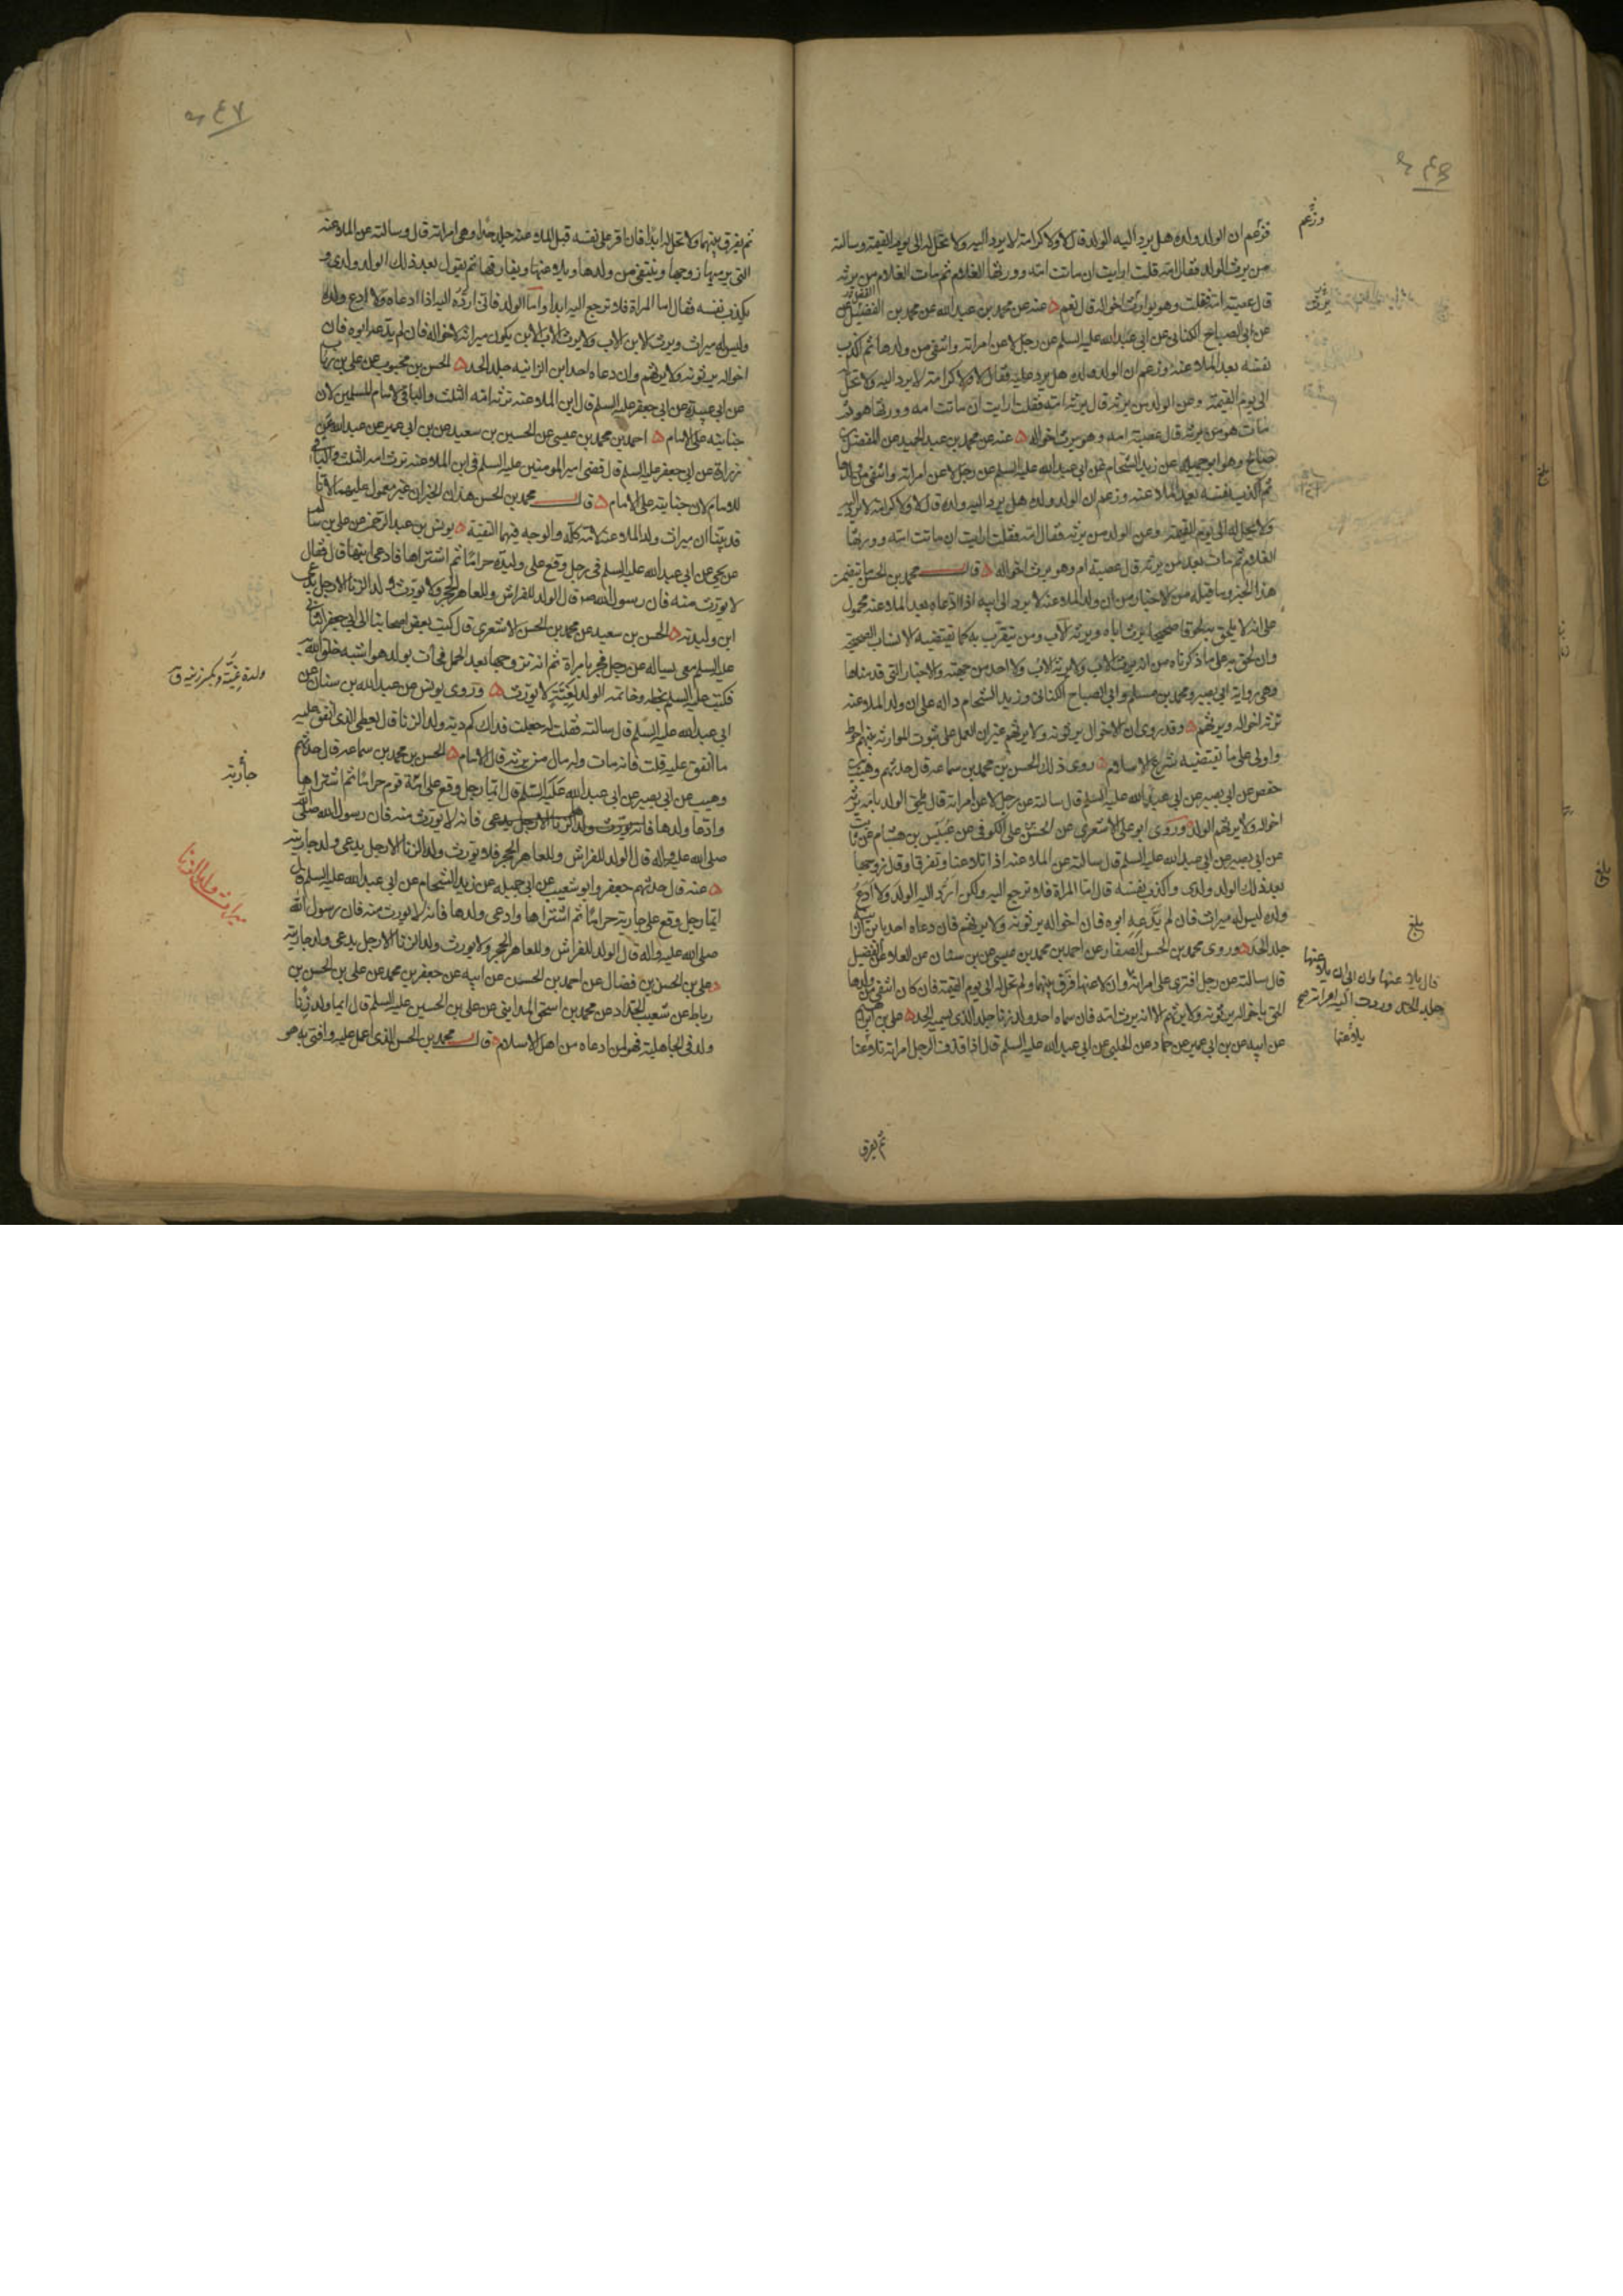 فزعم ان الولد ولده هل يرد اليه الولد قال لا ولا كرامة لا يرد اليه ولا تحل له الى يوم القيمة وسالته
من يرث الولد فقال امه قلت ارايت ان ماتت امه وورثها الغلام ثم مات الغلام من يرثه
قال عصبة امه قلت وهو يوارث اخواله قال نعم عنه عن محمد بن عبد الله عن محمد بن الفضيل
عن ابى الصباح الكنانى عن ابى عبد الله عليه السلم عن رجل لاعن امراته وانتفى من ولدها ثم اكذب
نفسه بعد الملاعنة وزعم ان الولد له هل يرد عليه فقال لا ولا كرامة لا يرد اليه ولا تحل له
الى يوم القيمة وعن الولد من يرثه قال يرثه امه فقلت ارايت ان ماتت امه وورثها هو ثم
مات هو من يرثه قال عصبة امه وهو يرث اخواله عنه عن محمد بن عبد الحميد عن المفضل بن
صالح وهو ابو جميله عن زيد الشحام عن ابى عبد الله عليه السلم عن رجل لاعن امراته وانتفى من ولدها
ثم اكذب نفسه بعد الملاعنه وزعم ان الولد ولده هل يرد اليه ولده قال لا ولا كرامة لا يرد اليه
ولا تحل له الى يوم القيمة وعن الولد من يرثه فقال امه فقلت ارايت ان ماتت امه وورثها
الغلام ثم مات بعد من يرثه قال عصبة ام وهو يرث اخواله قال محمد بن الحسن ما تتضمن
هذا الخبر وما قبله من الاخبار من ان ولد الملاعنة لا يرد الى ابيه اذا ادعاه بعد الملاعنه محمول
على انه لا يلحق به لحوقا صحيحا يرث اباه ويرثه الاب ومن يتقرب به كما تقتضيه الانساب الصحيحة
وان لحق به على ما ذكرناه من انه يرث الاب ولا يرثه الاب ولا احد من جهته والاخبار التى قدمناها
وهى رواية ابى بصير ومحمد بن مسلم وابى الصباح الكنانى وزيد الشحام داله على ان ولد الملاعنه
ترثه اخواله ويرثهم وقد روى ان الاخوال يرثونه ولا يرثهم غير ان العمل على ثبوت الموارثه بينهم احوط
واولى على ما تقتضيه شرع الاسلام روى ذلك الحسن بن محمد بن سماعه قال حدثهم وهيب بن
حفص عن ابى بصير عن ابى عبد الله عليه السلم قال سالته عن رجل لاعن امراته قال يلحق الولد بامه يرثه
اخواله ولا يرثهم الولد وروى ابو على الاشعرى عن الحسن بن على الكوفى عن عبيس بن هشام عن ثابت
عن ابى بصير عن ابى عبد الله عليه السلم قال سالته عن الملاعنه اذا تلاعنا وتفرقا وقال زوجها
بعد ذلك الولد ولدى واكذب نفسه قال اما المراة فلا ترجع اليه ولكن ارد اليه الولد ولا ادع
ولده ليس له ميراث فان لم يدعه ابوه فان اخواله يرثونه ولا يرثهم فان دعاه احد يا بن الزانية
جلد الحد وروى محمد بن الحسن الصفار عن احمد بن محمد بن عيسى عن بن سنان عن العلا عن الفضيل
قال سالته عن رجل افترى على امراته وان لاعنها فرق بينهما ولم تحل له الى يوم القيمة فان كان انتفى من ولدها
الحق باخواله يرثونه ولا يرثهم الا انه يرث امه فان سماه احد ولد زنا جلد الذى يسميه الحد على بن ابراهيم
عن ابيه عن بن ابى عمير عن حماد عن الحلبى عن ابى عبد الله عليه السلم قال اذا قذف الرجل امراته تلاعنا
ثم يفرق
وزعم
بلغ
قال يلاعنها وان ابى ان يلاعنها
جلد الحد وردت اليه امراته صح
يلاعنها
ثم يفرق بينهما ولا تحل له ابدا فان اقر على نفسه قبل الملاعنه جلد حدا وهى امراته قال وسالته عن الملاعنه
التى يرميها زوجها وينتفى من ولدها ويلاعنها ويفارقها ثم يقول بعد ذلك الولد ولدى و
يكذب نفسه فقال اما المراة فلا ترجع اليه ابدا واما الولد فانى ارده اليه اذا ادعاه ولا ادع ولده
وليس له ميراث ويرث الابن الاب ولا يرث الاب الابن يكون ميراثه لاخواله فان لم يدعه ابوه فان
اخواله يرثونه ولا يرثهم وان دعاه احد ابن الزانيه جلد الحد الحسن بن محبوب عن على بن رئاب
عن ابى عبيدة عن ابى جعفر عليه السلم قال ابن الملاعنه ترثه امه الثلث والباقى لامام المسلمين لان
جنايته على الامام احمد بن محمد بن عيسى عن الحسين بن سعيد عن بن ابى عمير عن عبد الله عن
زرارة عن ابى جعفر عليه السلم قال قضى امير المومنين عليه السلم فى ابن الملاعنه ترث امه الثلث والباقى
للامام لان جنايته على الامام قال محمد بن الحسن هذان الخبران غير معمول عليهما لانا
قد بينا ان ميراث ولد الملاعنة لامه كله والوجه فيهما التقية يونس بن عبد الرحمن عن على بن سالم
عن يحيى عن ابى عبد الله عليه السلم فى رجل وقع على وليدة حراما ثم اشتراها فادعى ابنها قال فقال
لا يورث منه فان رسول الله ص قال الولد للفراش وللعاهر الحجر ولا يورث ولد الزنا الا رجل يدعى
ابن وليدته الحسن بن سعيد عن محمد بن الحسن الاشعرى قال كتب بعض اصحابنا الى ابى جعفر الثانى
عليه السلم معى يساله عن رجل فجر بامراة ثم انه تزوجها بعد الحمل فجاءت بولد هو اشبه خلق الله به
فكتب عليه السلم بخطه وخاتمه الولد لغية لا يورث وروى يونس عن عبد الله بن سنان عن
ابى عبد الله عليه السلم قال سالته فقلت له جعلت فداك كم دية ولد الزنا قال يعطى الذى انفق عليه
ما انفق عليه قلت فانه مات وله مال من يرثه قال الامام الحسن بن محمد بن سماعه قال حدثهم
وهيب عن ابى بصير عن ابى عبد الله عليه السلم قال ايما رجل وقع على امة قوم حراما ثم اشتراها
وادعا ولدها فانه لا يورث منه فان رسول الله صلى
صلى الله عليه واله قال الولد للفراش وللعاهر الحجر فلا يورث ولد الزنا الا رجل يدعى ولد جاريته
عنه قال حدثهم جعفر وابو شعيب عن ابى جميله عن زيد الشحام عن ابى عبد الله عليه السلم قال
ايما رجل وقع على جارية حراما ثم اشتراها وادعى ولدها فانه لا يورث منه فان رسول الله
صلى الله عليه واله قال الولد للفراش وللعاهر الحجر ولا يورث ولد الزنا الا رجل يدعى ولد جاريته
على بن الحسن بن فضال عن احمد بن الحسن عن ابيه عن جعفر بن محمد عن على بن الحسن بن
رباط عن شعيب الحداد عن محمد بن اسحق المداينى عن على بن الحسين عليه السلم قال ايما ولد زنا
ولد فى الجاهلية فهو لمن ادعاه من اهل الاسلام قال محمد بن الحسن الذى اعمل عليه وافتى به هو
جارية
ميراث ولد الزنا